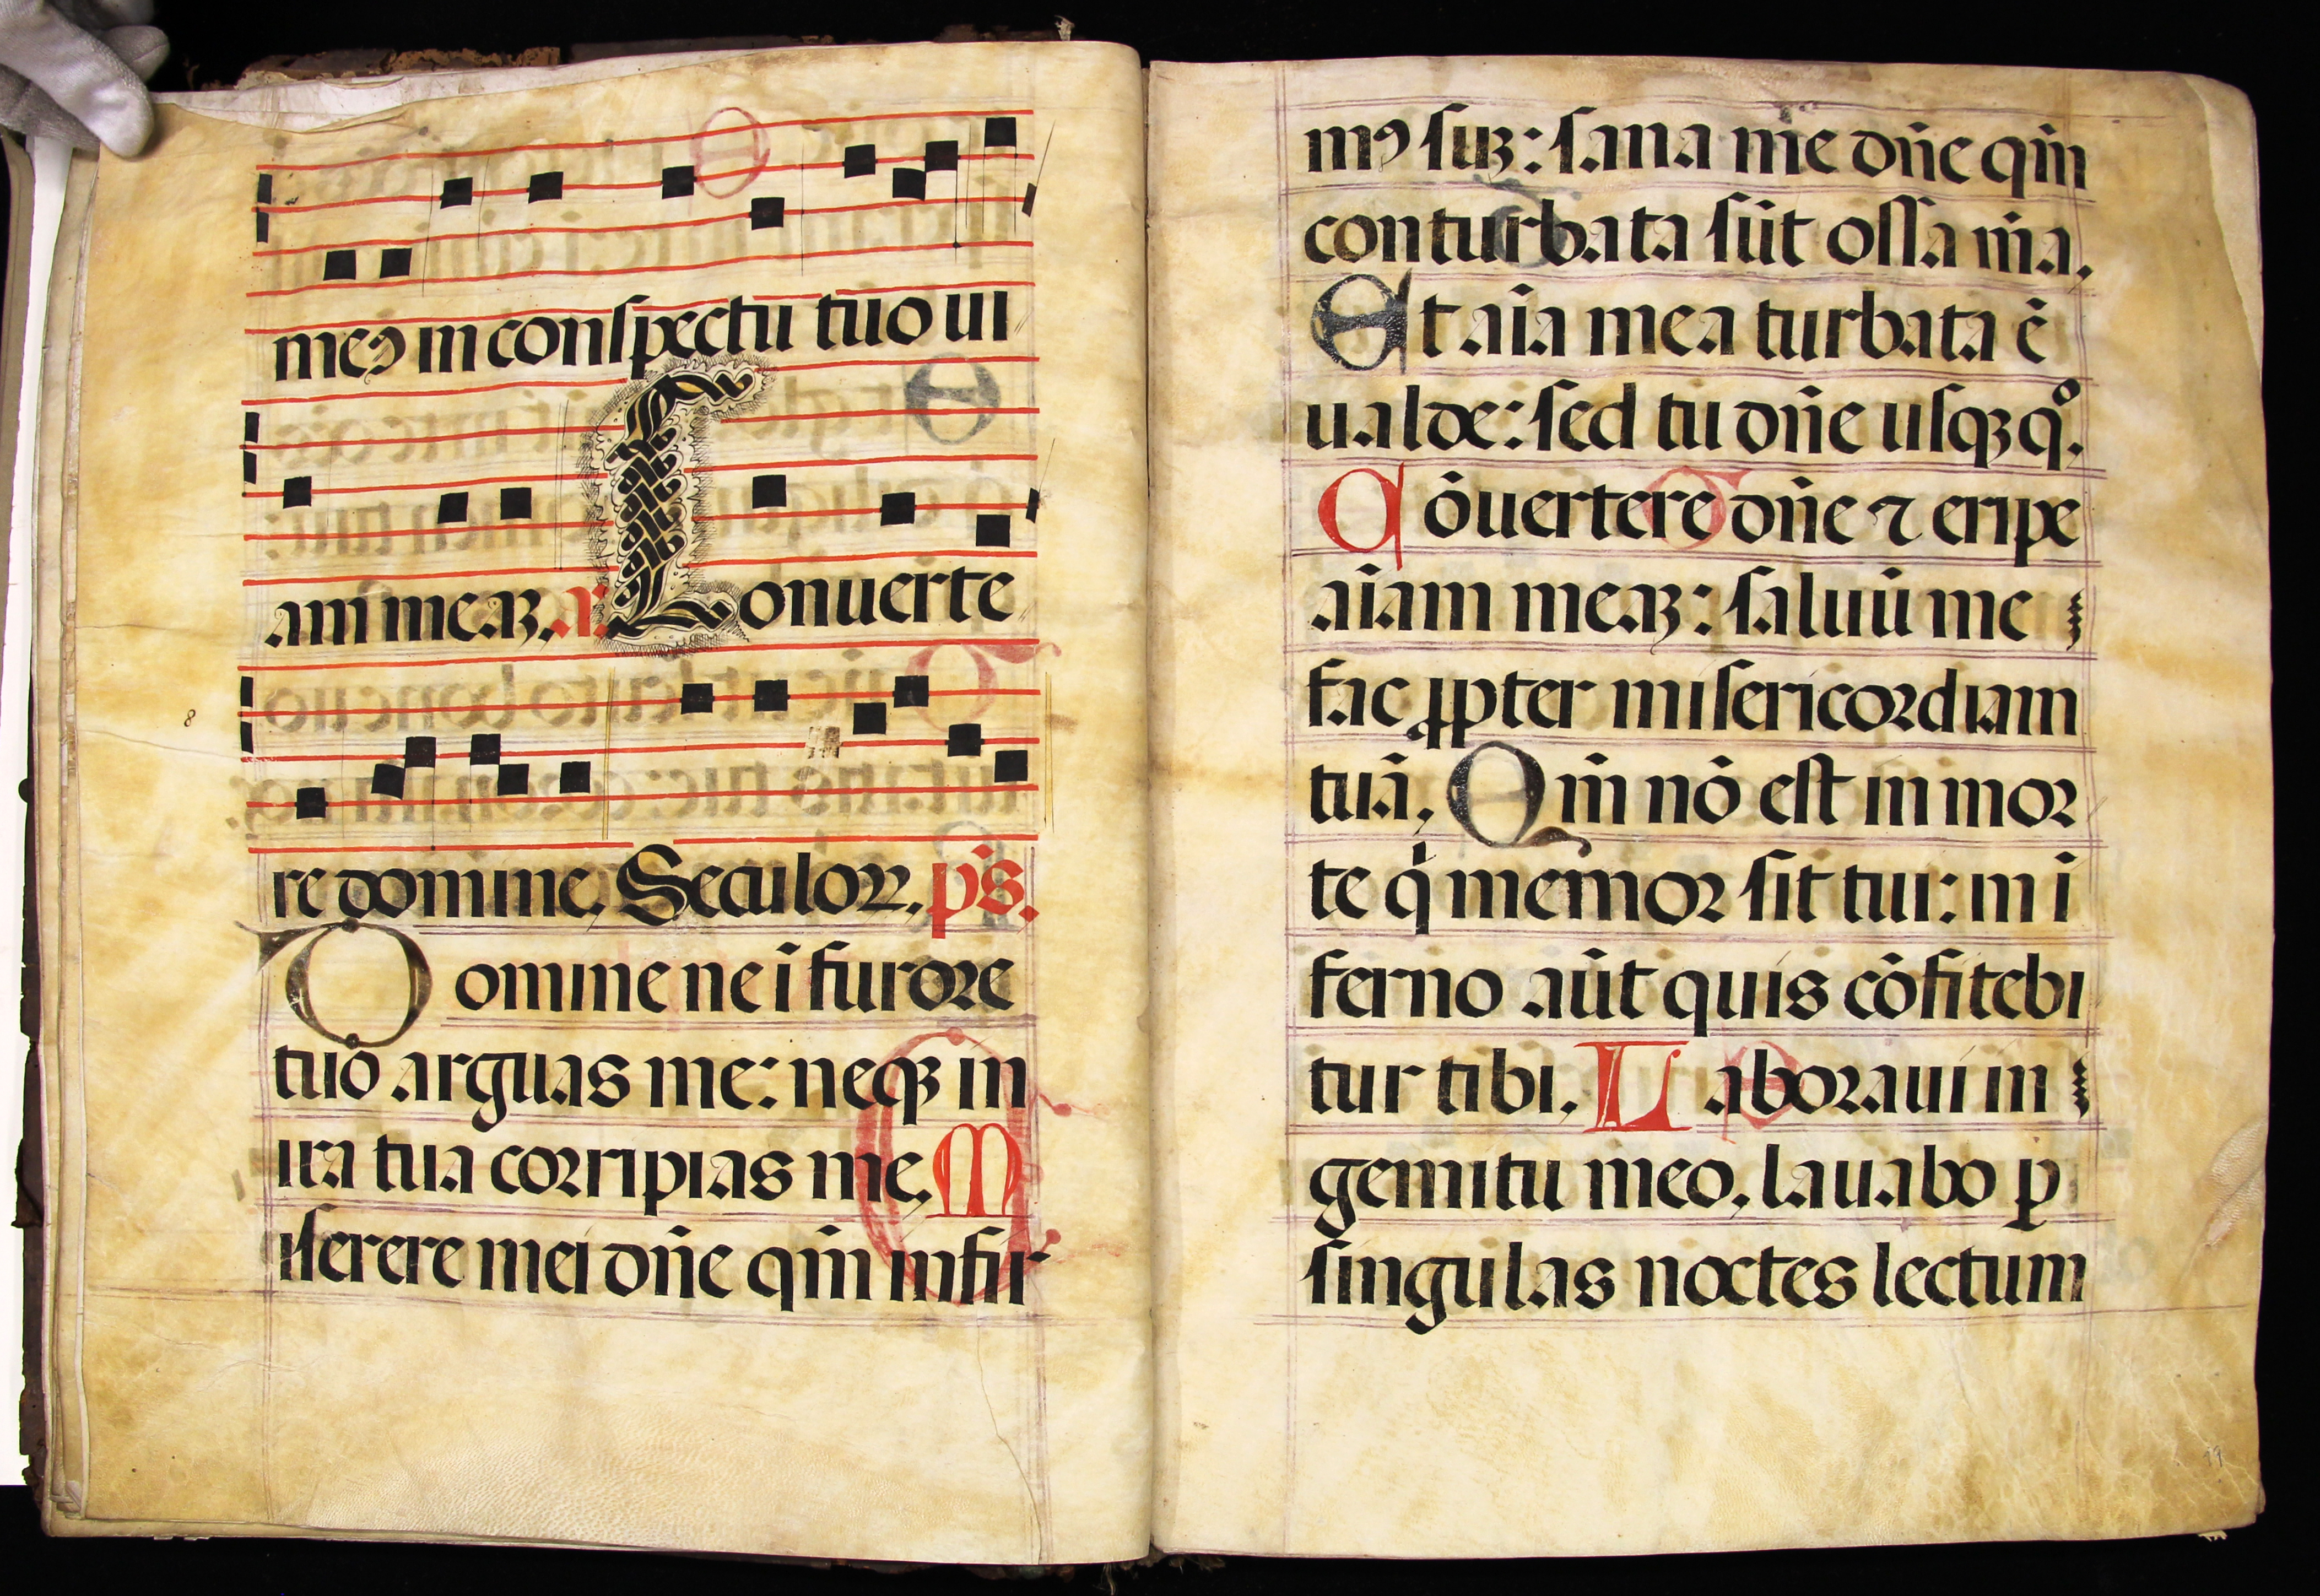 meꝯ in conspectu tuo ui
am meaꝫ. a. Conuerte
re domine. Seculoꝝ. ps̄.
Domine ne ī furore
tuo arguas me: neqꝫ in
ira tua corripias me. M
iserere mei dn̄e qm̄ infir
mꝯ suꝫ: sana me dn̄e qm̄
conturbata sūt ossa m̄a.
Et aīa mea turbata ē
ualde: sed tu dn̄e usqꝫqͦ.
Cōuertere dn̄e ⁊ eripe
aīam meaꝫ: saluū me
fac ꝓpter misericordiam
tuā. Qm̄ nō est in mor
te q̇ memor sit tui: in ī
ferno aūt quis cōfitebi
tur tibi. Laboraui in
gemitu meo, lauabo ꝑ
singulas noctes lectum
8